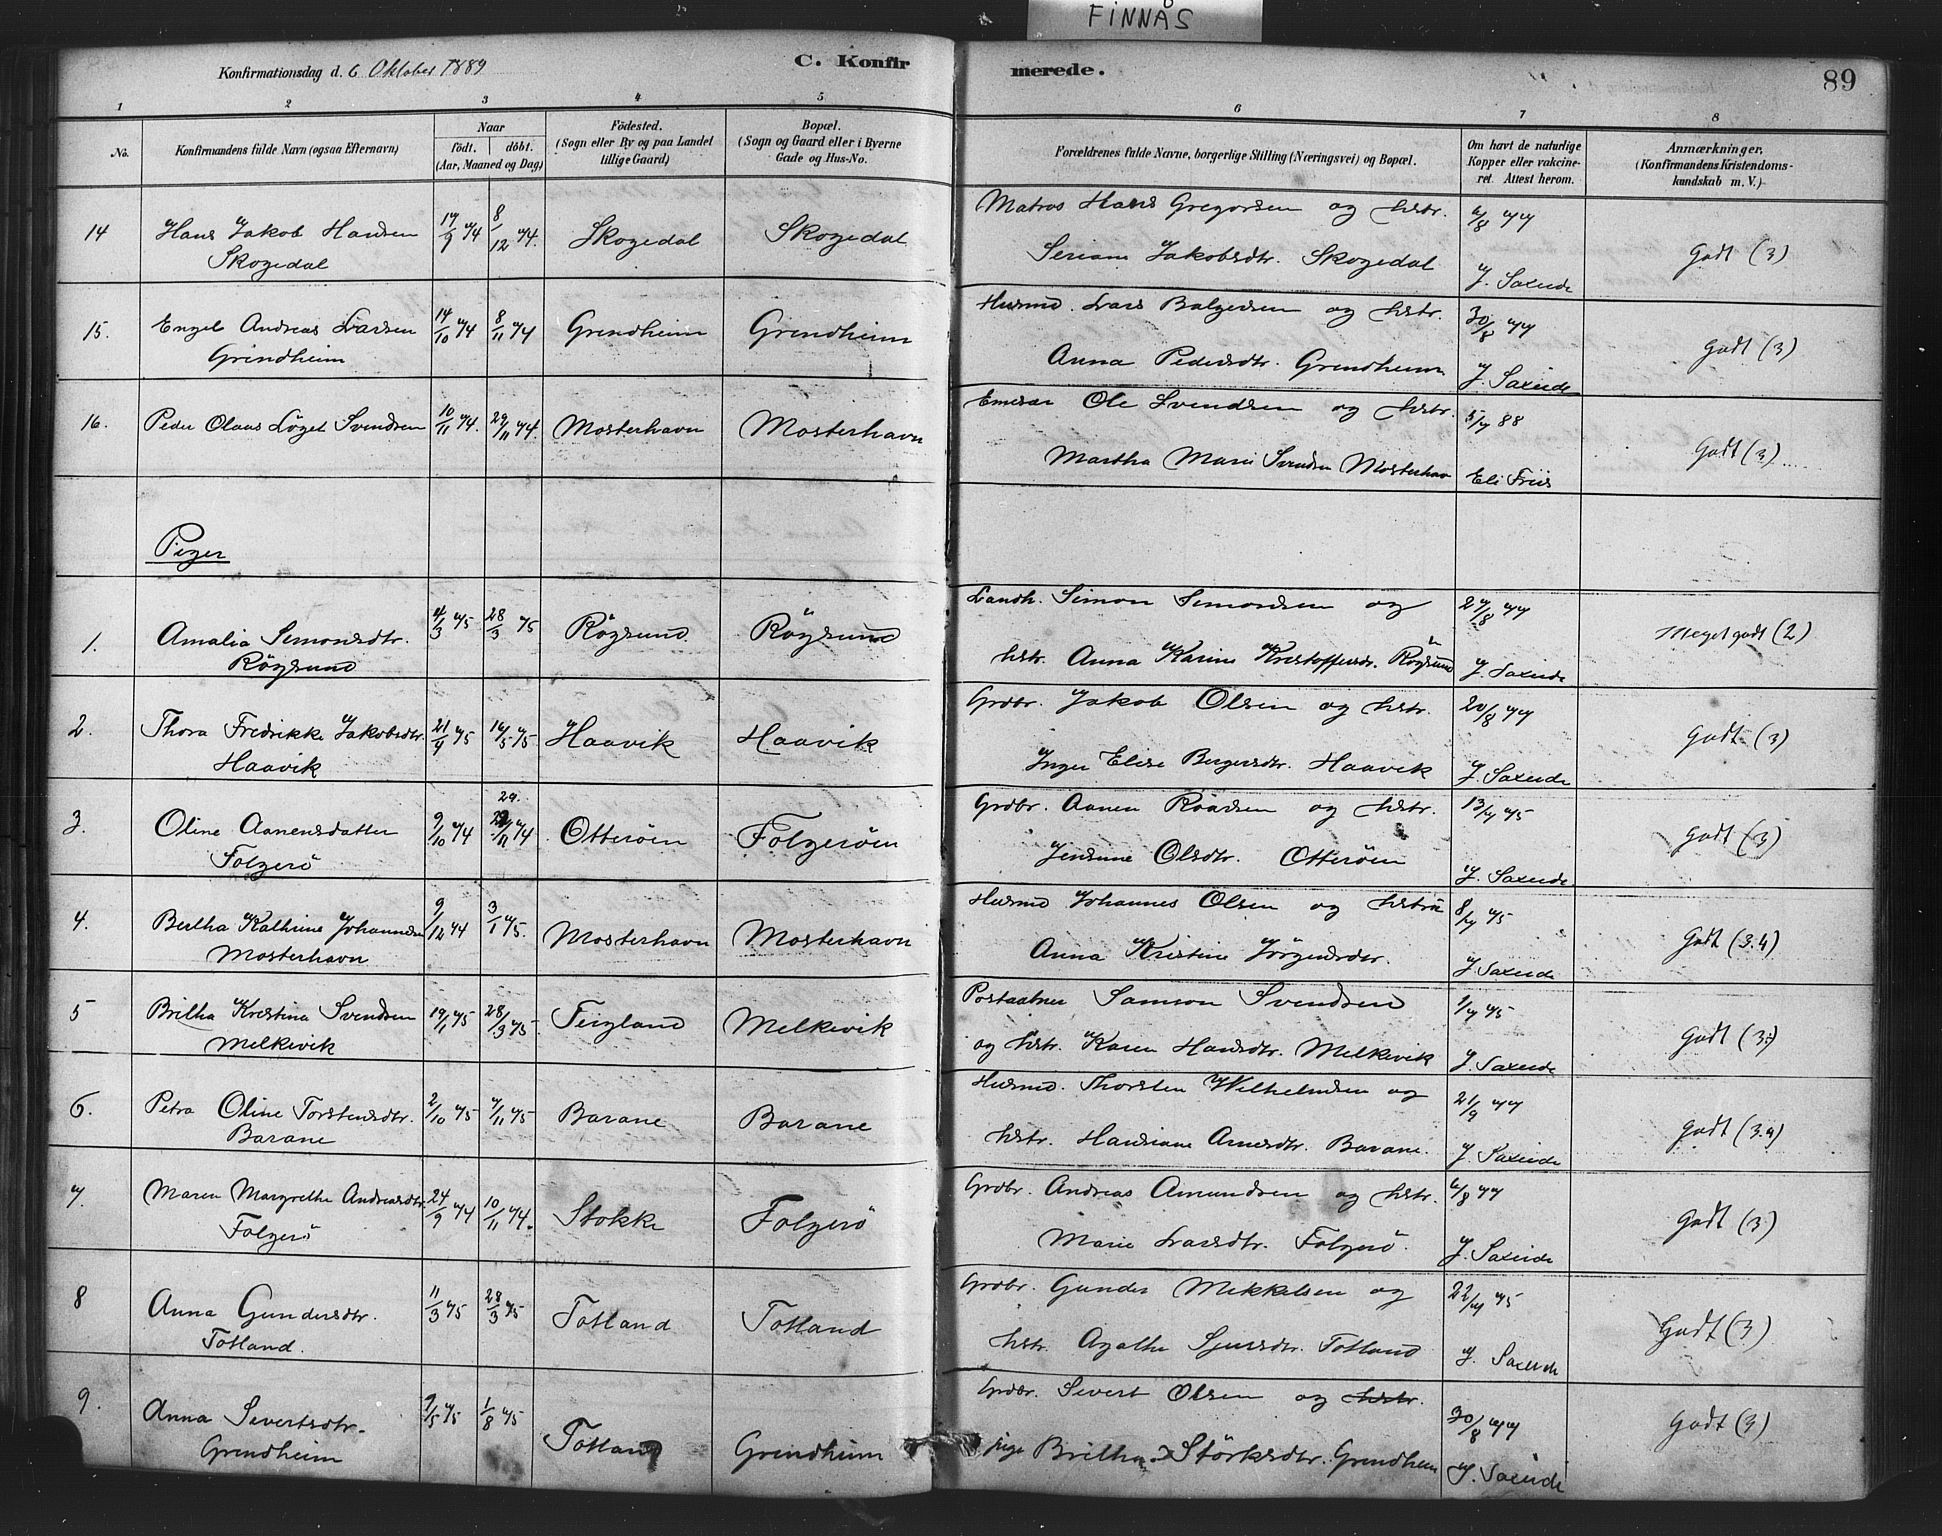 FINNÅS
Konfirmationsdag d. 6 Oktober 1889
C. Konfirmerede.
89
1 2 3 4 5 6 7 8
No.
Konfirmandens fulde Navn (ogsaa Efternavn)
Naar
födt. döbt.
(Aar, Maaned og Dag)
Födested.
(Sogn eller By og paa Landet
tillige Gaard)
Bopæl.
(Sogn og Gaard eller i Byerne
Gade og Hus-No.
Forældrenes fulde Navne, borgerlige Stilling (Næringsvei) og Bopæl.
Om havt de naturlige
Kopper eller vakcine-
ret. Attest herom.
Anmærkninger,
(Konfirmandens Kristendoms-
kundskab m. V.)
14 Hans Jakob Hansen 17/9 74 8/12 74. Skogedal Skogedal Matros Hans Gregorsen og hstr. 6/8 77 Godt (3)
Skogedal Seriane Jakobsdtr. Skogedal J. Saxeide
15. Engel Andreas Larsen 14/10 74 8/11 74 Grindheim Grindheim Husmd. Lars Balgedsen og hstr. 30/8 77 Godt (3)
Grindheim Anna Pedersdtr. Grindheim J. Saxeide
16. Peder Olaus Löget Svendsen 10/11 74. 29/11 74. Mosterhavn Mosterhavn Ole Svendsen og hstr. 5/7 88 Godt (3)
Martha Marie Svendsen Mosterhavn Eli Friis
Piger
1. Amalia Simonsdtr. 4/3 75 28/3 75 Röysund Röysund Landh. Simon Simonsen og 27/8 77 Meget godt (2)
Röysund hstr. Anna Karine Kristoffersdr. Röysund J. Saxeide
2. Thora Fredrikke Jakobsdtr. 21/4 75 16/5 75 Haavik Haavik Grdbr. Jakob Olsen og hstr. 20/8 77 Godt (3)
Haavik Inger Elise Bergersdtr. Haavik J. Saxeide
29.
3. Oline Aanensdatter 9/10 74 /11 74 Otteröen Folgeröen Grdbr. Aanen Roadsen og hstr. 13/7 75 Godt (3)
Folgerö Jensine Olsdtr. Otteröen J. Saxeide
4. Bertha Kathrine Johannesen 9/12 74 3/1 75. Mosterhavn Mosterhavn Husmd Johannes Olsen og hstru 8/7 75 Godt (3.4)
Mosterhavn Anna Kristine Jörgensdtr. J. Saxeide
5 Britha Kristina Svendsen 19/1 75 28/3 75. Feigland Melkevik Postaabner Samson Svendsen 1/7 75 Godt (3)
Melkevik og hstr. Karen Hansdtr. Melkevik J. Saxeide
6. Petra Oline Torstensdtr. 2/10 75 7/11 75 Barane Barane Husmd. Thorsten Wilhelmsen og 21/9 77 Godt (3.4)
Barane hstr. Hansiane Arnesdtr. Barane. J. Saxeide
7. Maren Margrethe Andreasdtr. 24/9 74 10/11 74. Stokke Folgerö Grdbr. Andreas Amundsen og hstr. 6/8 77 Godt (3)
Folgerö Marie Larsdtr. Folgerö. J. Saxeide
8 Anna Gundersdtr. 11/3 75 28/3 75 Totland Totland Grdbr. Gunder Mikkelsen og 22/7 75 Godt (3)
Totland. hstr. Agathe Sjursdtr. Totland J. Saxeide
9. Anna Sivertsdtr. 7/5 75 1/8 75 Totland Grindheim Grdbr. Sivert Olsen og hstr. 30/8 77 Godt (3)
Grindheim pige Britha Störksdtr. Grindheim J. Saxeide